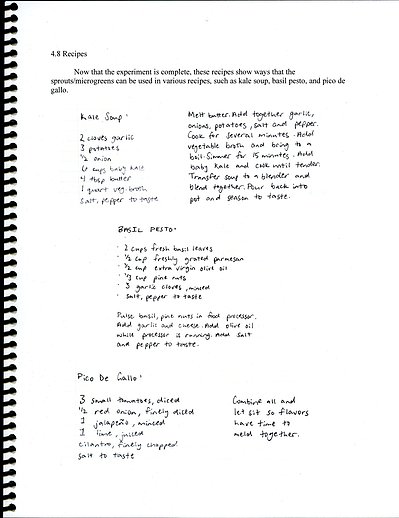 4.8 Recipes
Now that the experiment is complete, these recipes show ways that the
sprouts/microgreens can be used in various recipes, such as kale soup, basil pesto, and pico de
gallo.
Kale Soup:
2 cloves garlic
3 potatoes
1/2 onion
6 cups baby kale
4 tbsp butter
1 quart veg. broth
salt, pepper to taste
Melt butter. Add together garlic,
onions, potatoes, salt and pepper.
Cook for several minutes. Add
vegetable broth and bring to a
boil. Simmer for 15 minutes. Add
baby kale and cook until tender.
Transfer soup to a blender and
blend together. Pour back into
pot and season to taste.
BASIL PESTO:
· 2 cups fresh basil leaves
· 1/2 cup freshly grated parmesan
· 1/2 cup extra virgin olive oil
· 1/3 cup pine nuts
· 3 garlic cloves, minced
· salt, pepper to taste
Pulse basil, pine nuts in food processor.
Add garlic and cheese. Add olive oil
while processor is running. Add salt
and pepper to taste.
Pico De Gallo:
3 small tomatoes, diced
1/2 red onion, finely diced
1 jalapeño, minced
1 lime, juiced
cilantro, finely chopped
salt to taste
Combine all and
let sit so flavors
have time to
meld together.